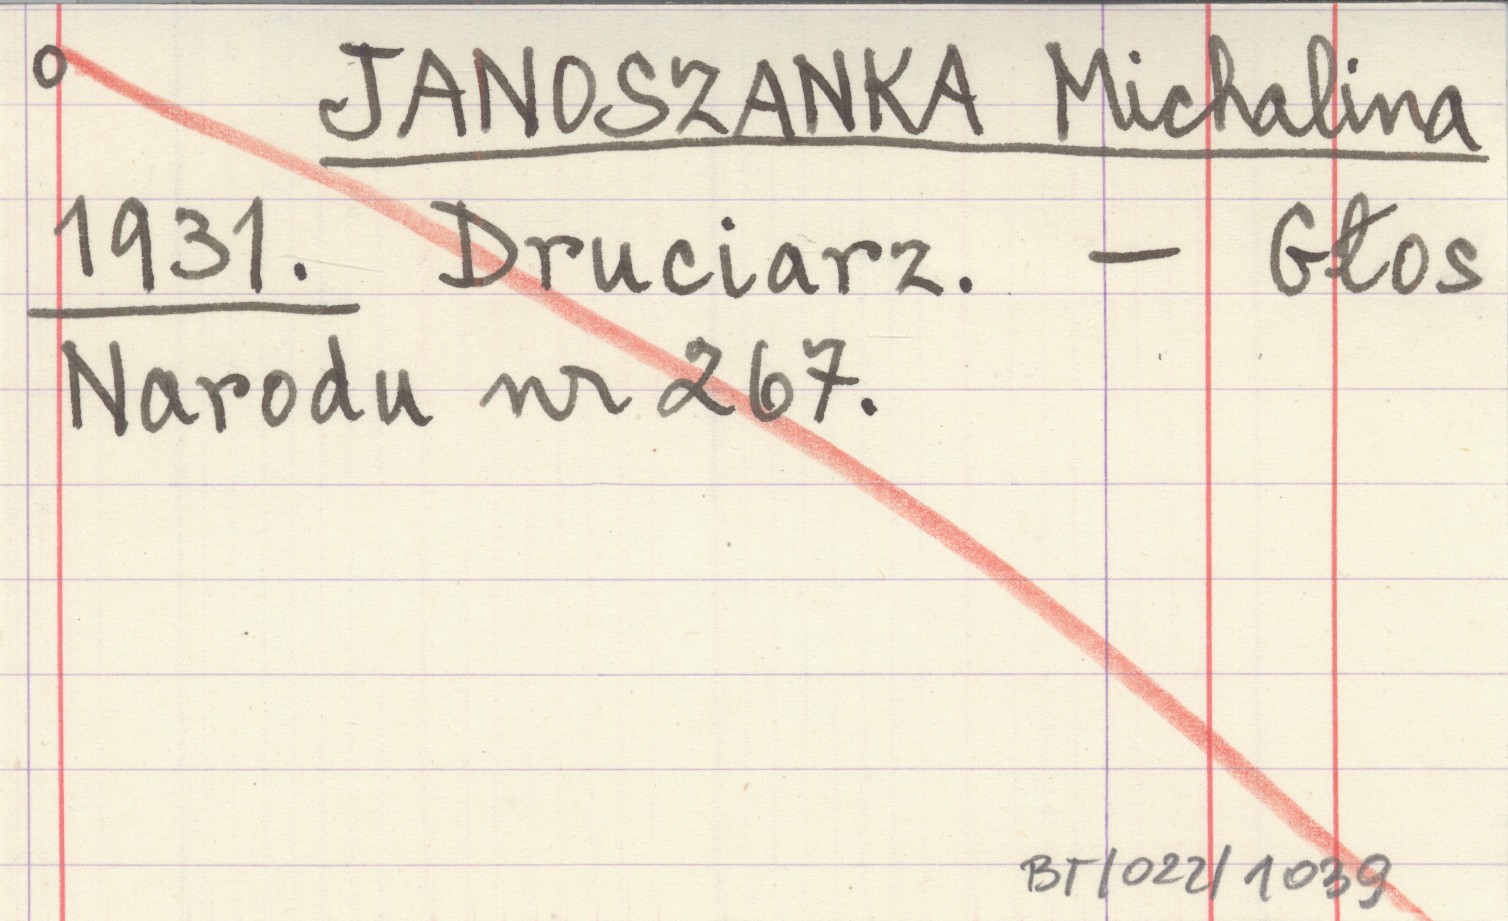 o JANOSZANKA Michalina
1931. Druciarz. — Głos
Narodu nr 267.
BT/022/1039